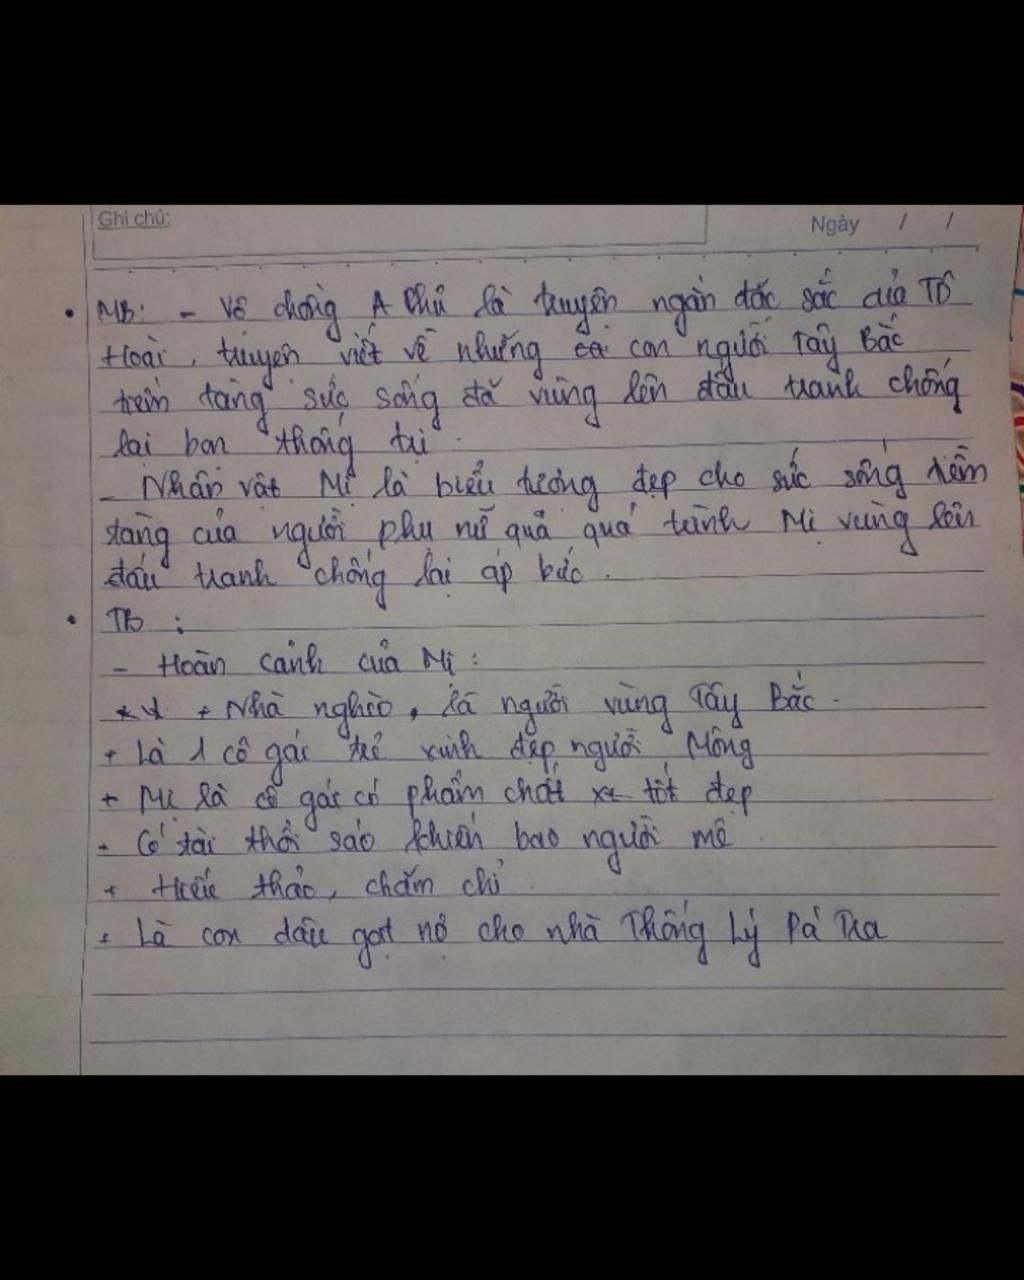 Ghi chú:
Ngày / /
• MB: - Vợ chồng A Phủ là truyện ngắn đặc sắc của Tô
Hoài, truyện viết về những con người Tây Bắc
tiềm tàng sức sống đã vùng lên đấu tranh chống
lại bọn thống trị.
- Nhân vật Mị là biểu tượng đẹp cho sức sống tiềm
tàng của người phụ nữ quả quá trình Mị vùng lên
đấu tranh chống lại áp bức.
• TB :
- Hoàn cảnh của Mị :
+ Nhà nghèo, là người vùng Tây Bắc.
+ Là 1 cô gái trẻ xinh đẹp, người Mông
+ Mị là cô gái có phẩm chất tốt đẹp
+ Có tài thổi sáo khiến bao người mê.
+ Hiếu thảo, chăm chỉ.
+ Là con dâu gạt nợ cho nhà Thống Lý Pá Tra